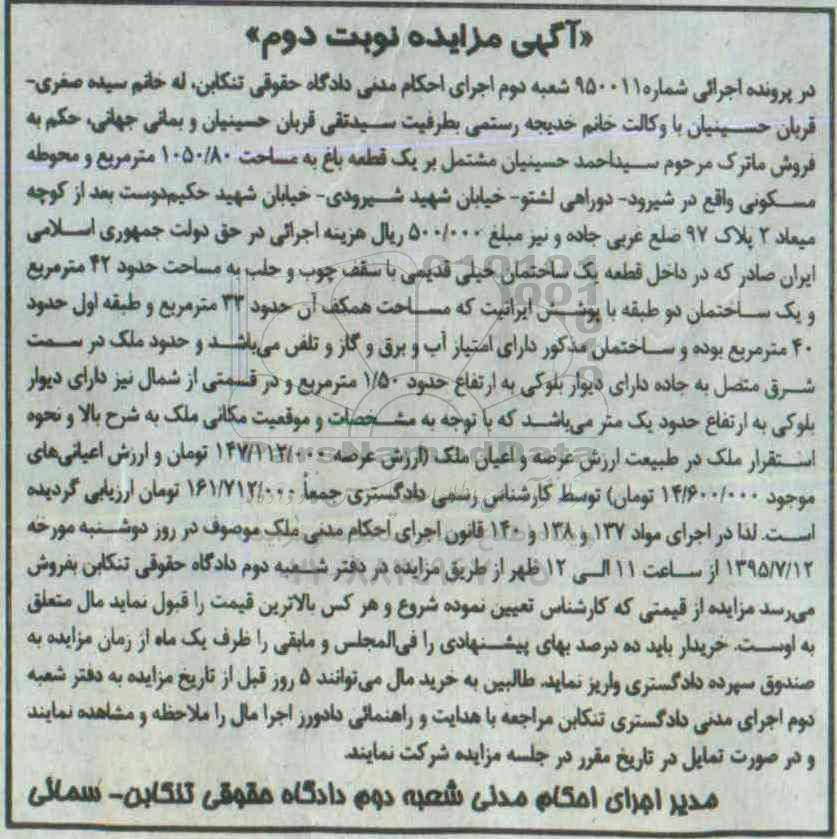 «آگهی مزایده نوبت دوم»
در پرونده اجرائی شماره ۹۵۰۰۱۱ شعبه دوم اجرای احکام مدنی دادگاه حقوقی تنکابن، له خانم سیده صغری-
قربان حسینیان با وکالت خانم خدیجه رستمی بطرفیت سیدتقی قربان حسینیان و بمانی جهانی، حکم به
فروش ماترک مرحوم سیداحمد حسینیان مشتمل بر یک قطعه باغ به مساحت ۱۰۵۰/۸۰ مترمربع و محوطه
مسکونی واقع در شیرود- دوراهی لشتو- خیابان شهید شیرودی- خیابان شهید حکیم‌دوست بعد از کوچه
میعاد ۲ پلاک ۹۷ ضلع غربی جاده و نیز مبلغ ۵۰۰/۰۰۰ ریال هزینه اجرائی در حق دولت جمهوری اسلامی
ایران صادر که در داخل قطعه یک ساختمان خیلی قدیمی با سقف چوب و حلب به مساحت حدود ۴۲ مترمربع
و یک ساختمان دو طبقه با پوشش ایرانیت که مساحت همکف آن حدود ۳۳ مترمربع و طبقه اول حدود
۴۰ مترمربع بوده و ساختمان مذکور دارای امتیاز آب و برق و گاز و تلفن می‌باشد و حدود ملک در سمت
شرق متصل به جاده دارای دیوار بلوکی به ارتفاع حدود ۱/۵۰ مترمربع و در قسمتی از شمال نیز دارای دیوار
بلوکی به ارتفاع حدود یک متر می‌باشد که با توجه به مشخصات و موقعیت مکانی ملک به شرح بالا و نحوه
استقرار ملک در طبیعت ارزش عرصه و اعیان ملک (ارزش عرصه ۱۴۷/۱۱۲/۰۰۰ تومان و ارزش اعیانی‌های
موجود ۱۴/۶۰۰/۰۰۰ تومان) توسط کارشناس رسمی دادگستری جمعاً ۱۶۱/۷۱۲/۰۰۰ تومان ارزیابی گردیده
است. لذا در اجرای مواد ۱۳۷ و ۱۳۸ و ۱۴۰ قانون اجرای احکام مدنی ملک موصوف در روز دوشنبه مورخه
۱۳۹۵/۷/۱۲ از ساعت ۱۱ الی ۱۲ ظهر از طریق مزایده در دفتر شعبه دوم دادگاه حقوقی تنکابن بفروش
می‌رسد مزایده از قیمتی که کارشناس تعیین نموده شروع و هر کس بالاترین قیمت را قبول نماید مال متعلق
به اوست. خریدار باید ده درصد بهای پیشنهادی را فی‌المجلس و مابقی را ظرف یک ماه از زمان مزایده به
صندوق سپرده دادگستری واریز نماید. طالبین به خرید مال می‌توانند ۵ روز قبل از تاریخ مزایده به دفتر شعبه
دوم اجرای مدنی دادگستری تنکابن مراجعه با هدایت و راهنمائی دادورز اجرا مال را ملاحظه و مشاهده نمایند
و در صورت تمایل در تاریخ مقرر در جلسه مزایده شرکت نمایند.
مدیر اجرای احکام مدنی شعبه دوم دادگاه حقوقی تنکابن- سمائی